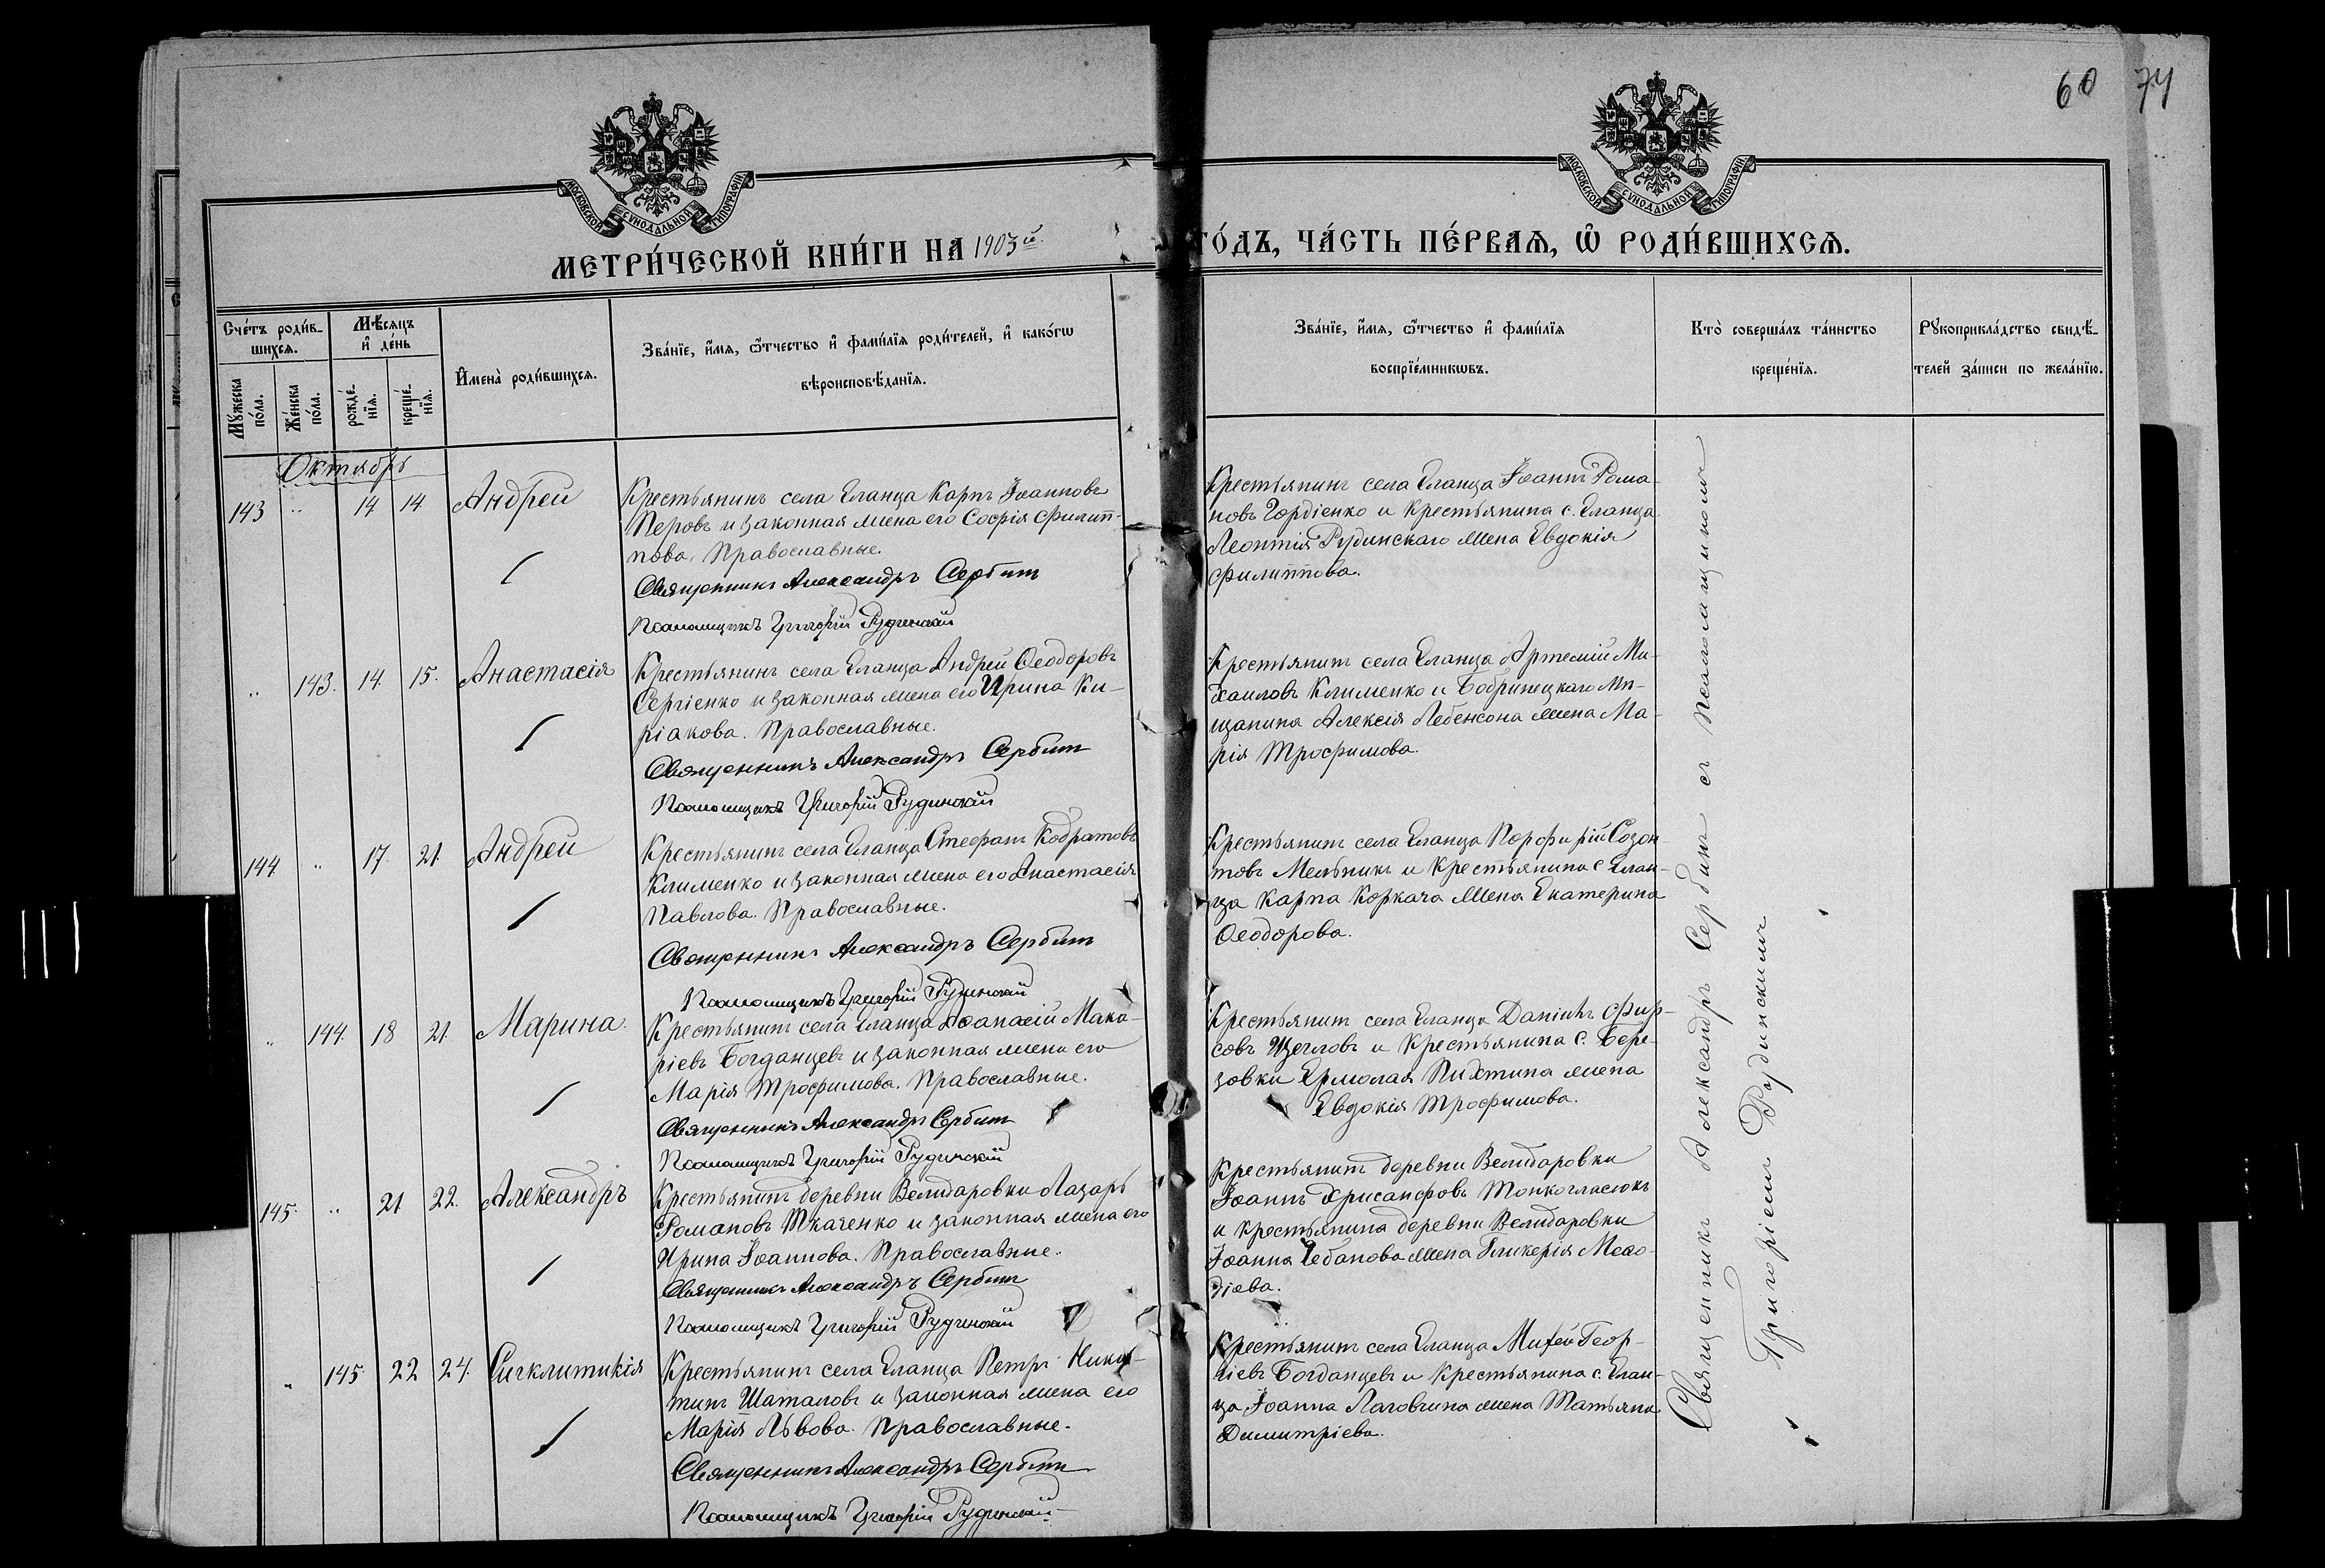 60 74
МОСКОВСКОЙ СУНОДАЛЬНОЙ ТИПОГРАФІИ
МОСКОВСКОЙ СУНОДАЛЬНОЙ ТИПОГРАФІИ
МЕТРИ́ЧЕСКОЙ КНИ́ГИ НА 1903й
ГО́ДЪ, ЧА́СТЬ ПЕ́РВАЯ, Ѡ РОДИ́ВШИХСЯ.
Сче́тъ роди́в-
шихся.
Мѣ́сяцъ
и де́нь
Мꙋ́жеска
по́ла.
Же́нска
по́ла.
рожде́-
нїя.
креще́-
нїя.
Имена̀ роди́вшихся.
Зва́нїе, и́мя, ѻ҆́тчество и фами́лїя роди́телей, и како́гѡ
вѣроисповѣ́данїя.
Зва́нїе, и́мя, ѻ҆́тчество и фами́лїя
воспрїе́мникѡвъ.
Кто̀ соверша́лъ та́инство
креще́нїя.
Рꙋкоприкла́дство свидѣ́-
телей за́писи по жела́нїю.
Октябрь
143 " 14 14 Андрей
Крестьянинъ села Еланца Карпъ Іоанновъ
Перовъ и законная жена его Софія Филип-
пова. Православные.
Священникъ Александръ Сербинъ
Псаломщикъ Григорій Рудинскій
Крестьянинъ села Еланца Іоаннъ Рома-
новъ Гордіенко и крестьянина с. Еланца
Леонтія Рудинскаго жена Евдокія
Филиппова.
" 143. 14. 15. Анастасія
Крестьянинъ села Еланца Андрей Ѳеодоровъ
Сергіенко и законная жена его Ирина Ки-
ріакова. Православные.
Священникъ Александръ Сербинъ
Псаломщикъ Григорій Рудинскій
Крестьянинъ села Еланца Артемій Ми-
хаиловъ Клименко и Бобринецкаго Мѣ-
щанина Алексія Лебенсона жена Ма-
рія Трофимова.
144 " 17. 21. Андрей
Крестьянинъ села Еланца Стефанъ Кодратовъ
Клименко и законная жена его Анастасія
Павлова. Православные.
Священникъ Александръ Сербинъ
Псаломщикъ Григорій Рудинскій
Крестьянинъ села Еланца Порфирій Созон-
товъ Мельникъ и крестьянина с. Елан-
ца Карпа Коркача жена Екатерина
Ѳеодорова.
" 144. 18 21. Марина.
Крестьянинъ села Еланца Аѳанасій Мака-
ріевъ Богданцевъ и законная жена его
Марія Трофимова. Православные.
Священникъ Александръ Сербинъ
Псаломщикъ Григорій Рудинскій
Крестьянинъ села Еланца Даніилъ Фир-
совъ Щегловъ и крестьянина с. Бере-
зовки Ермолая Пихтина жена
Евдокія Трофимова.
145. " 21 22. Александръ
Крестьянинъ деревни Велидаровки Лазарь
Романовъ Ткаченко и законная жена его
Ирина Іоаннова. Православные.
Священникъ Александръ Сербинъ
Псаломщикъ Григорій Рудинскій
Крестьянинъ деревни Велидаровки
Іоаннъ Хрисанфовъ Тонкогласюкъ
и крестьянина деревни Велидаровки
Іоанна Чебанова жена Гликерія Меѳо-
діева.
" 145. 22 24. Сигклитикія
Крестьянинъ села Еланца Петръ Ники-
тинъ Шаталовъ и законная жена его
Марія Львова. Православные.
Священникъ Александръ Сербинъ
Псаломщикъ Григорій Рудинскій
Крестьянинъ села Еланца Михей Геор-
гіевъ Богданцевъ и крестьянина с. Елан-
ца Іоанна Лаговчина жена Татьяна
Димитріева.
Священникъ Александръ Сербинъ съ псаломщикомъ
Григоріемъ Рудинскимъ